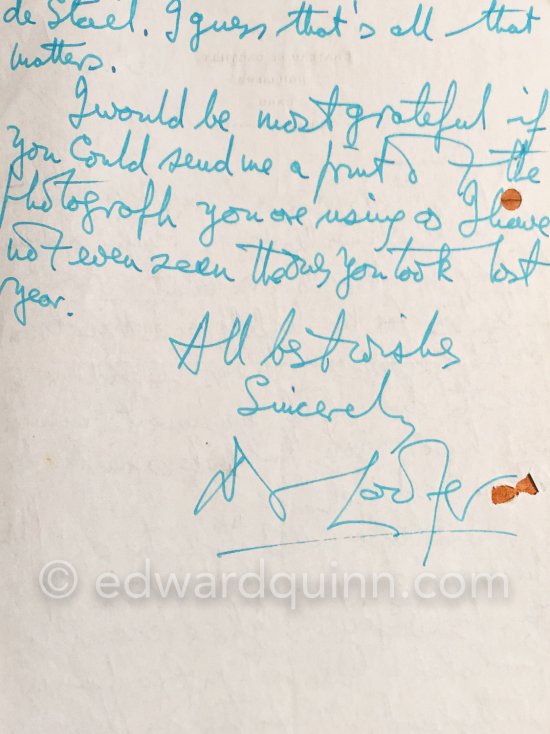 de Staël. I guess that's all that
matters.
I would be most grateful if
you could send me a print of the
photograph you are using as I have
not even seen those you took last
year.
All best wishes
Sincerely
Cooper
© edwardquinn.com